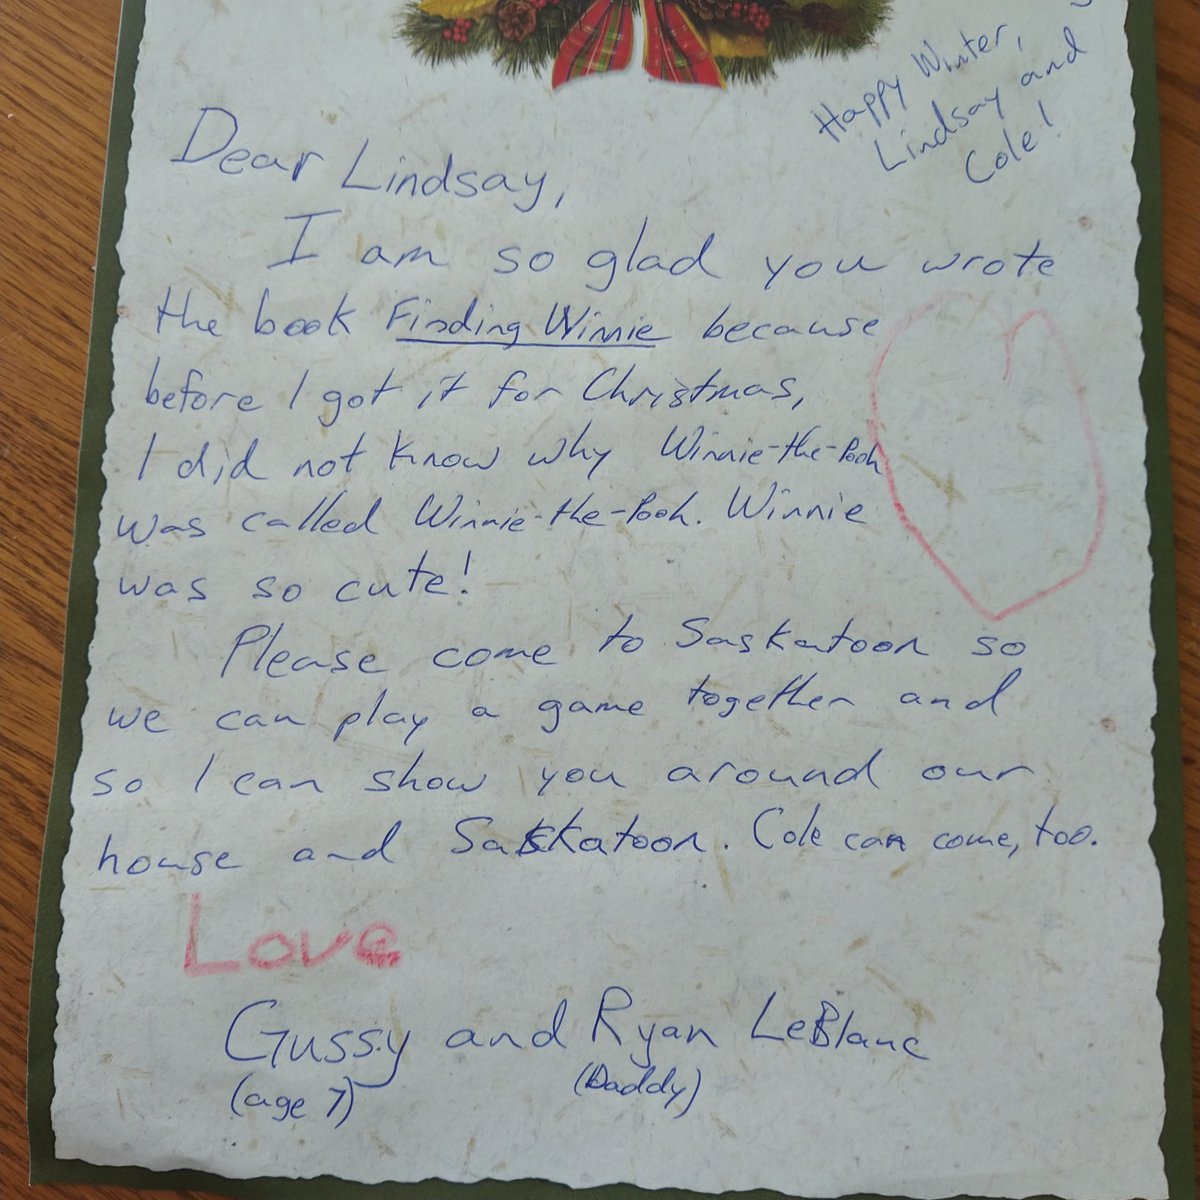 Happy Winter,
Lindsay and
Cole!
Dear Lindsay,
I am so glad you wrote
the book Finding Winnie because
before I got it for Christmas,
I did not know why Winnie-the-Pooh
was called Winnie-the-Pooh. Winnie
was so cute!
Please come to Saskatoon so
we can play a game together and
so I can show you around our
house and Saskatoon. Cole can come, too.
Love
Gussy and Ryan LeBlanc
(age 7) (Daddy)